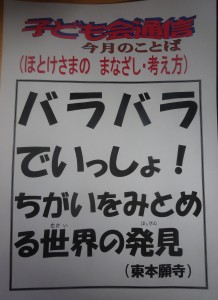 子ども会通信
今月のことば
(ほとけさまの まなざし・考え方)
バラバラ
でいっしょ!
ちがいをみとめ
る世界の発見
(東本願寺)